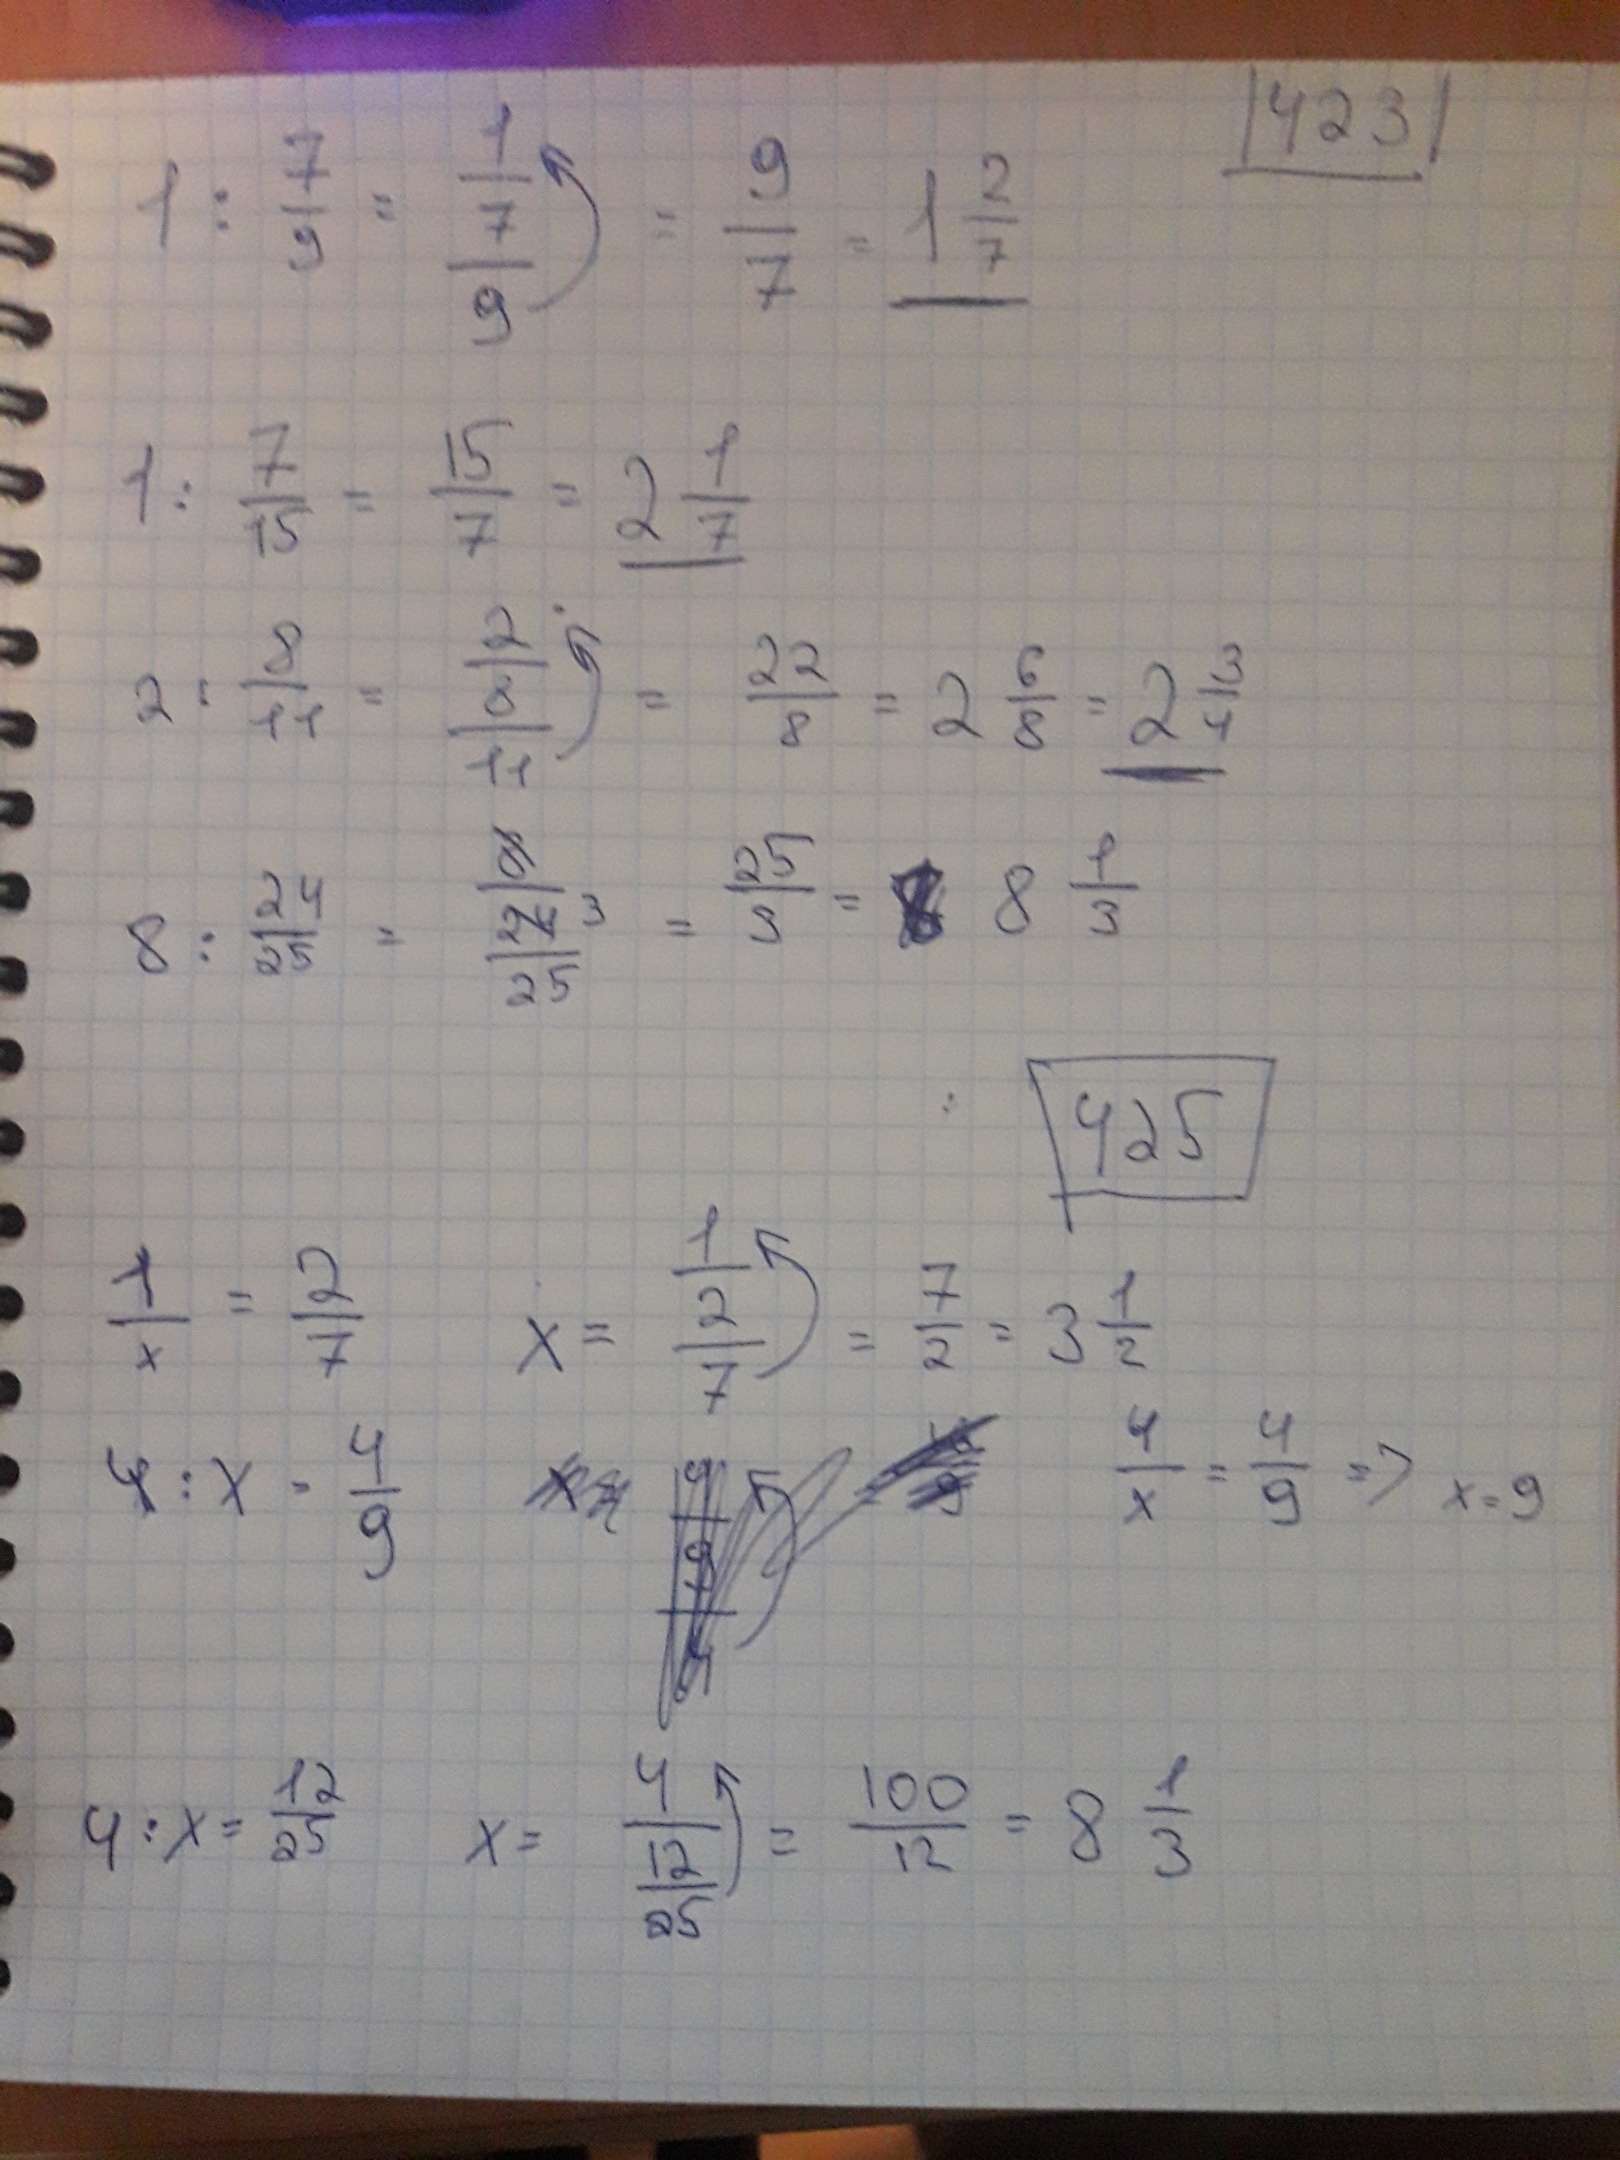 423
1 : 7/9 = 1/(7/9) = 9/7 = 1 2/7
1 : 7/15 = 15/7 = 2 1/7
2 : 8/11 = 2/(8/11) = 22/8 = 2 6/8 = 2 3/4
8 : 24/25 = 8/(24/25) 3 = 25/3 = 8 1/3
425
1/x = 2/7 x = 1/(2/7) = 7/2 = 3 1/2
4 : x = 4/9 4/x = 4/9 => x = 9
4 : x = 12/25 x = 4/(12/25) = 100/12 = 8 1/3